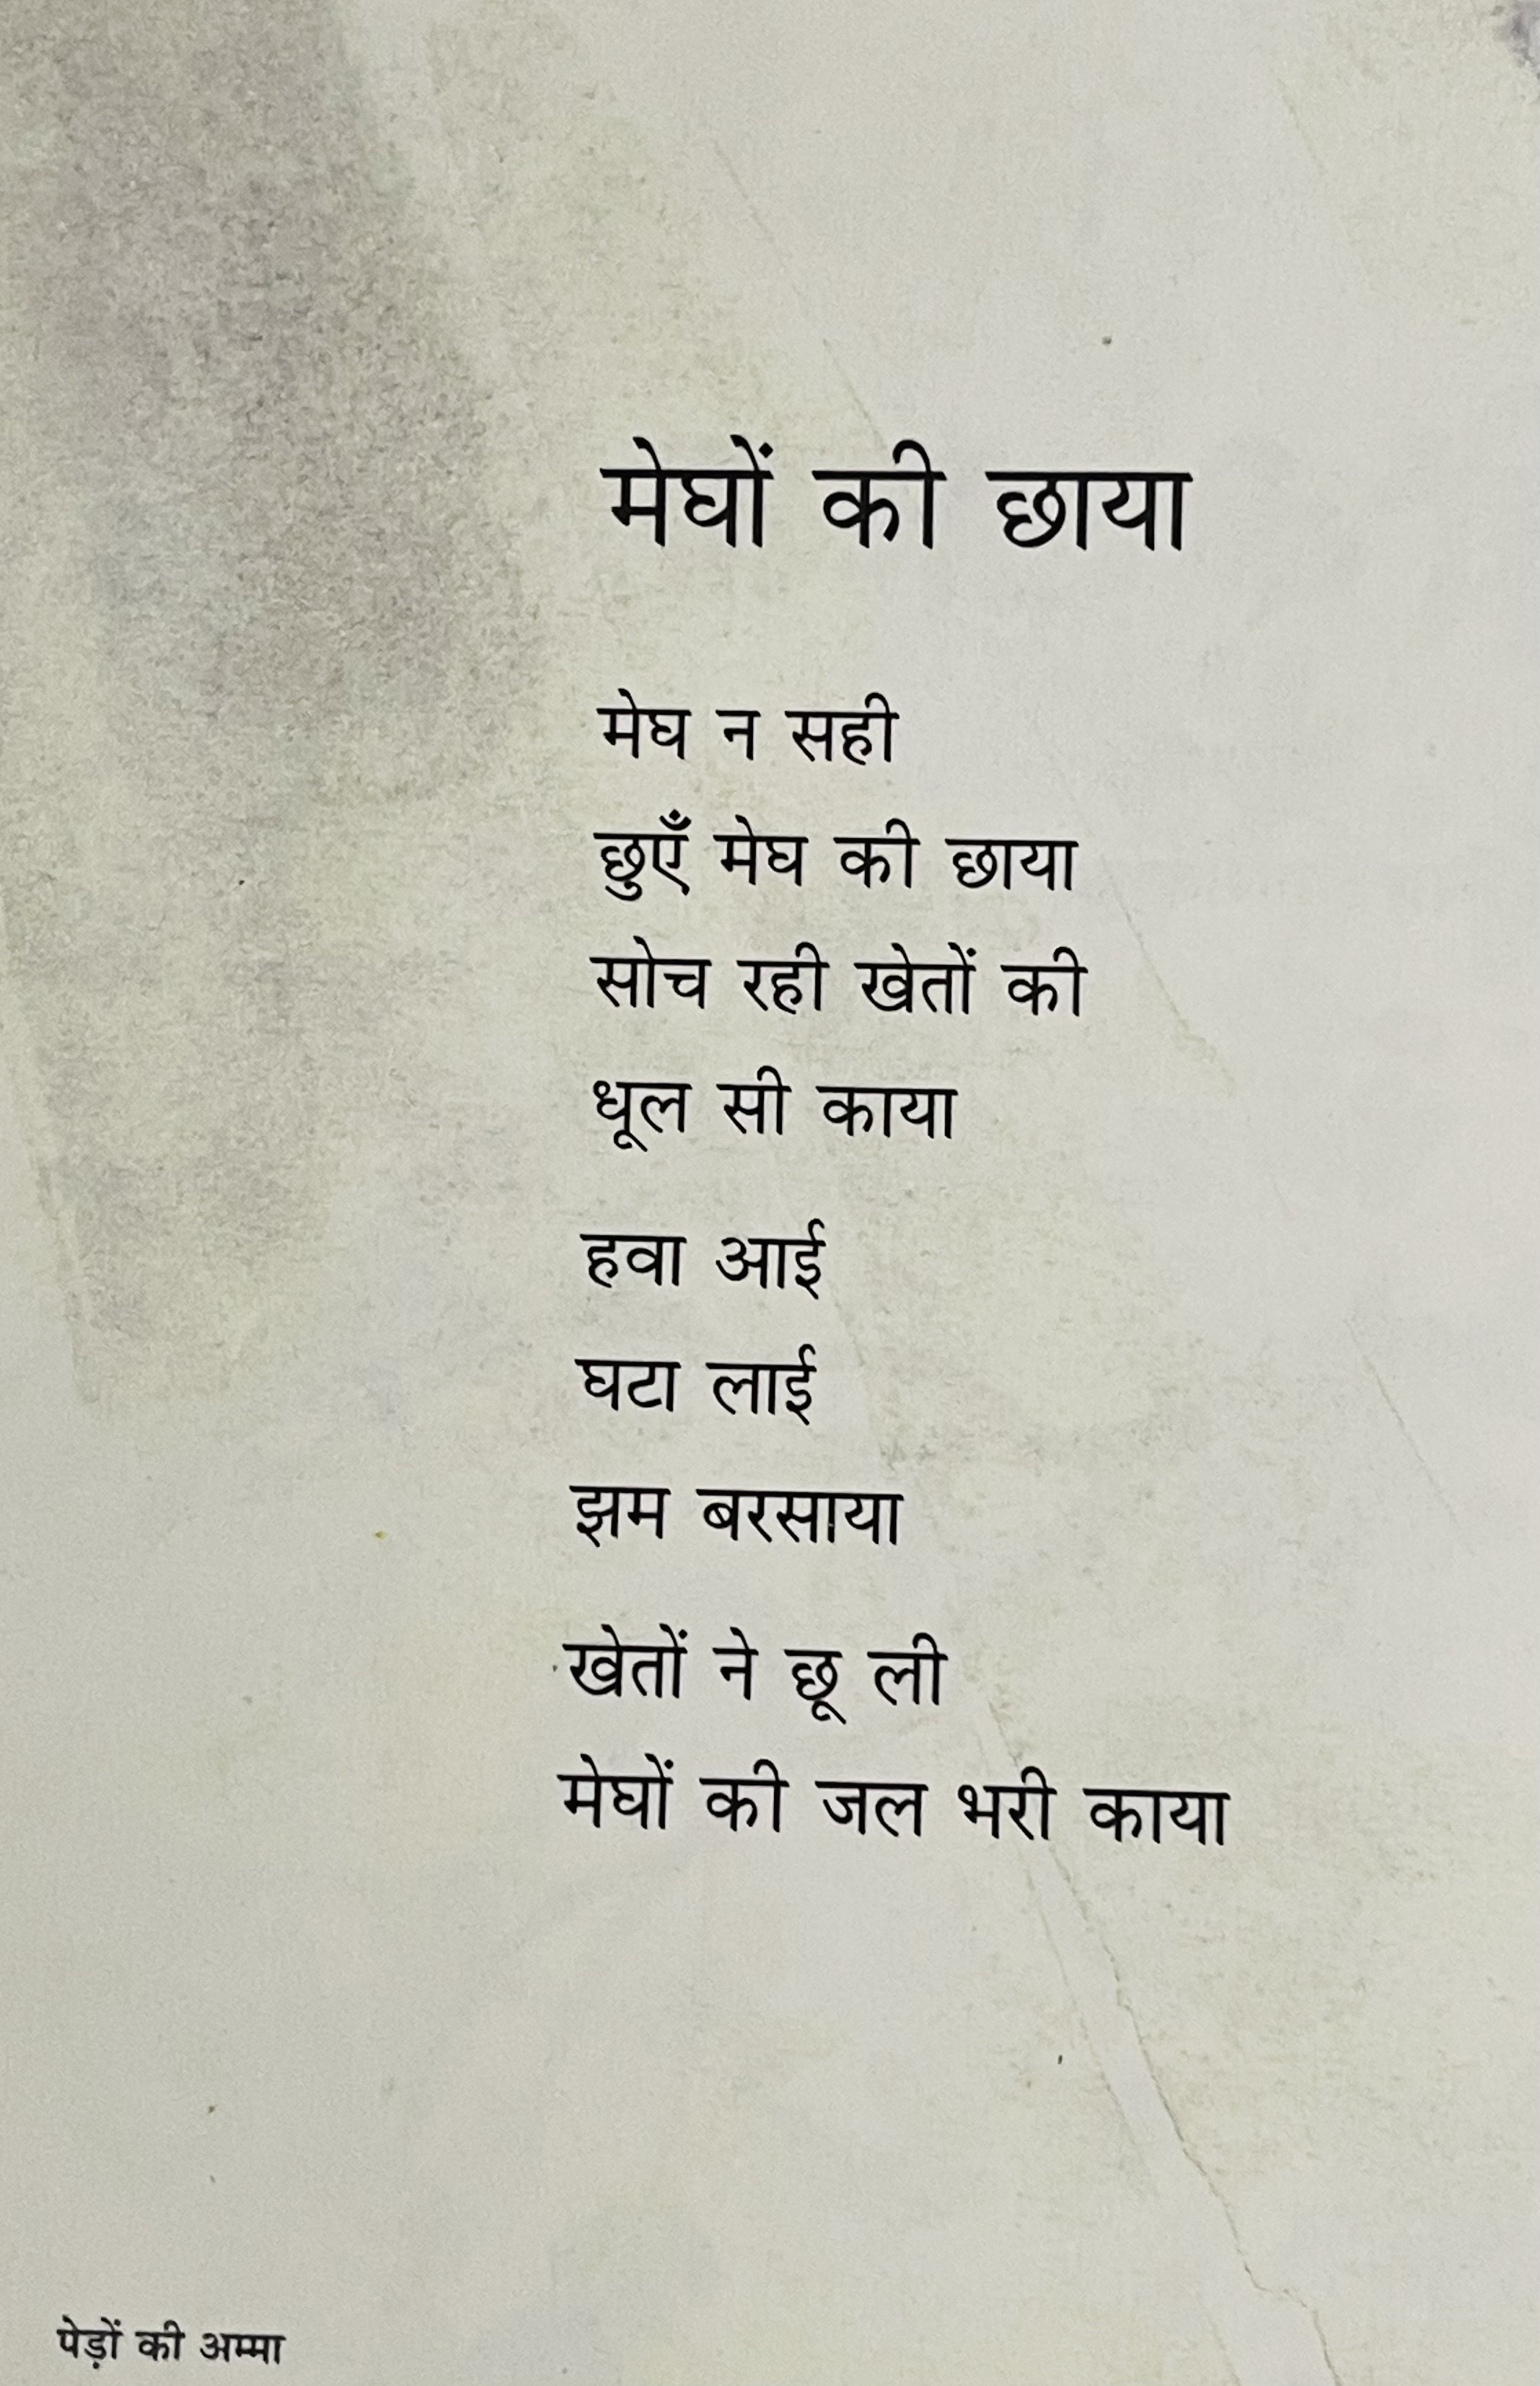 मेघों की छाया
मेघ न सही
छुएँ मेघ की छाया
सोच रही खेतों की
धूल सी काया
हवा आई
घटा लाई
झम बरसाया
खेतों ने छू ली
मेघों की जल भरी काया
पेड़ों की अम्मा